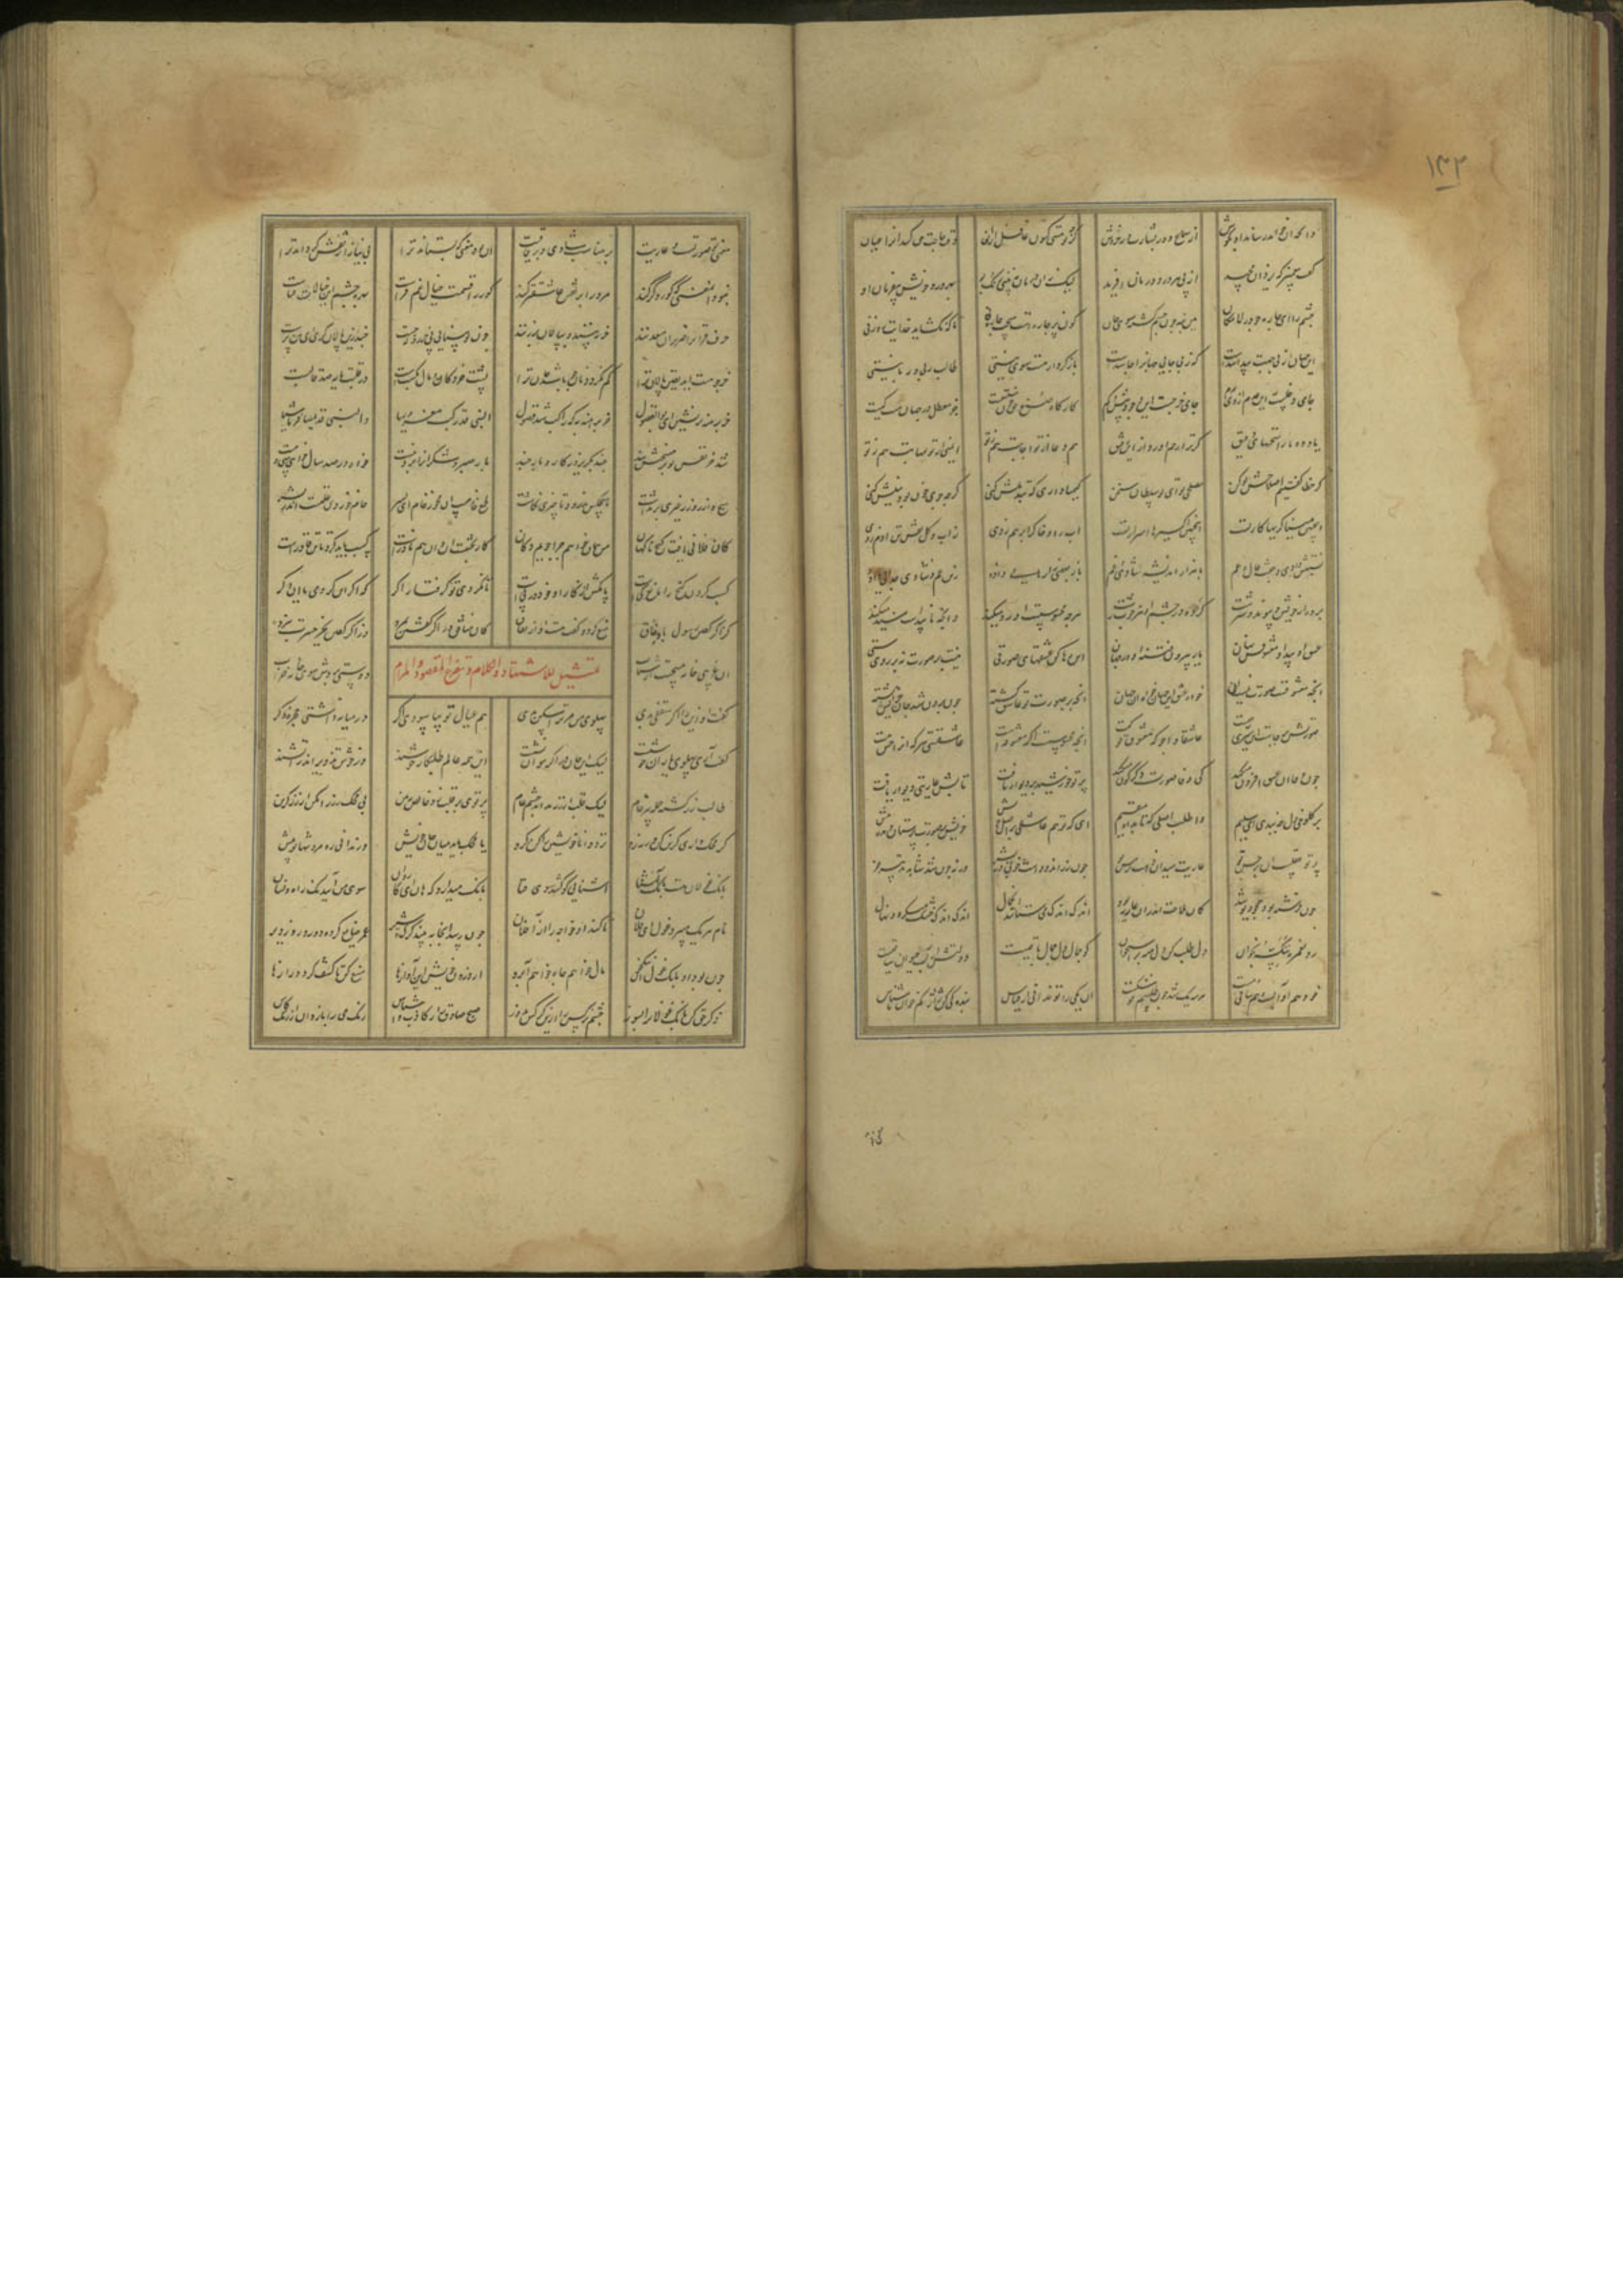 ۱۴۲
وانچه او خواهد رساند او بگوش از سماع و از بشارت وز خروش گرچه تو هستی کنون غافل از آن وقت حاجت حق کند آنرا عیان
گفت پیغمبر که یزدان مجید از پی هر درد درمان آفرید لیک زان درمان نبینی رنگ و بو بهر درد خویش بی فرمان او
چشم را ای چاره جو در لامکان هین بنه چون چشم کشته سوی جان کون پر چاره است هیچت چاره نی تا که نگشاید خدایت روزنی
این جهان از بی جهت پیدا شدست که ز بی جایی جهانرا جا شدست بازگرد از هست سوی نیستی طالب ربی و ربانیستی
جای دخلست این عدم از وی مرم جای خرجست این وجود بیش و کم کارگاه صنع حق چون نیستیست جز معطل در جهان هست کیست
یاد ده ما را سخنهای دقیق که ترا رحم آورد آن ای رفیق هم دعا از تو اجابت هم ز تو ایمنی از تو مهابت هم ز تو
گر خطا گفتیم اصلاحش تو کن مصلحی تو ای تو سلطان سخن کیمیا داری که تبدیلش کنی گرچه جوی خون بود نیلش کنی
اینچنین میناگریها کار تست اینچنین اکسیرها اسرار تست آب را و خاک را بر هم زدی ز آب و گل نقش تن آدم زدی
نسبتش دادی و جفت و خال و عم با هزار اندیشه شادی و غم باز بعضی را رهایی داده زین غم و شادی جدایی داده
برده از خویش و پیوند و سرشت کرده در چشم او هر خوب زشت هرچه محسوسست او رد میکند وانچه ناپیداست مسند میکند
عشق او پیدا و معشوقش نهان یار بیرون فتنه او در جهان این رها کن عشقهای صورتی نیست بر صورت نه بر روی ستی
آنچه معشوقست صورت نیست آن خواه عشق این جهان خواه آن جهان آنچه بر صورت تو عاشق گشته چون برون شد جان چرایش هشته
صورتش برجاست این سیری ز چیست عاشقا واجو که معشوق تو کیست آنچه محسوسست اگر معشوقه است عاشقستی هر که او را حس هست
چون وفا آن عشق افزون میکند کی وفا صورت دگرگون میکند پرتو خورشید بر دیوار تافت تابش عاریتی دیوار یافت
بر کلوخی دل چه بندی ای سلیم واطلب اصلی که تابد او مقیم ای که تو هم عاشقی بر عقل خویش خویش بر صورت پرستان دیده بیش
پرتو عقلست آن بر حس تو عاریت میدان ذهب بر مس تو چون زراندودست خوبی در بشر ورنه چون شد شاهد تو پیر خر
چون فرشته بود همچون دیو شد کان ملاحت اندران عاریه بود اندک اندک میستاند آن جمال اندک اندک خشک میگردد نهال
رو نعمره ننکسه بخوان دل طلب کن دل منه بر استخوان کو جمال دل جمال باقیست دولتش از آب حیوان ساقیست
خود هم او آبست و هم ساقی و مست هر سه یک شد چون طلسم تو شکست آن یکی را تو ندانی از قیاس بندگی کن ژاژ کم خا ناشناس
معنی تو صورتست و عاریت بر مناسب شادی و بر قافیت آن بود معنی که بستاند ترا بی نیاز از نقش گرداند ترا
نبود آن معنی که کور و کر کند مرد را بر نقش عاشقتر کند کور را قسمت خیال غم فزاست بهره چشم این خیالات فناست
حرف قرآنرا ضریران معدنند خر نبینند و بپالان بر زنند چون تو بینایی پی خر رو که جست چند پالان دوزی ای پالان پرست
خر چو هست آید یقین پالان ترا کم نگردد نان چو باشد جان ترا پشت خر دکان و مال و مکسبست در قلبت مایه صد قالبست
خر برهنه برنشین ای بوالفضول خر برهنه نه که راکب شد رسول النبی قد رکب معروریا والنبی قد سافر ماشیا
شد خر نفس تو بر میخش ببند چند بگریزد ز کار و بار چند بار صبر و شکر او را بردنیست خواه در صد سال خواهی سی و بیست
هیچ وازر وزر غیری برنداشت هیچکس ندرود تا چیزی نکاشت طمع خامست آن مخور خام ای پسر خام خوردن علت آرد در بشر
کان فلانی یافت گنجی ناگهان من همان خواهم چرا جویم دکان کار بختست آن و آن هم نادرست کسب باید کرد تا تن قادرست
کسب کردن گنج را مانع کیست پا مکش از کار آن خود در پیست تا نگردی تو گرفتار اگر که اگر این کردمی یا آن دگر
کز اگر گفتن رسول با وفاق منع کرد و گفت هست آن از نفاق کان منافق در اگر گفتن بمرد وز اگر گفتن بجز حسرت نبرد
تمثیل للاستشهاد والکلام وشرح المقصود والمرام
آن غریبی خانه میجست از شتاب دوستی بردش سوی خانه خراب
گفت او این را اگر سقفی بدی پهلوی من مر ترا مسکن بدی هم عیال تو بیاسودی اگر در میانه داشتی حجره دگر
گفت آری پهلوی یاران خوشست لیک ای جان در اگر نتوان نشست این همه عالم طلبکار خوشند وز خوش تزویر اندر آتشند
طالب زر گشته جمله پیر و خام لیک قلب از زر نداند چشم عام پرتوی بر قلب زد خالص ببین بی محک زر را مکن از ظن گزین
گر محک داری گزین کن ورنه رو نزد دانا خویشتن را کن گرو یا محک باید میان جان خویش ور ندانی ره مرو تنها تو پیش
بانگ غولان هست بانگ آشنا آشنایی که کشد سوی فنا بانگ میدارد که هان ای کاروان سوی من آیید نک راه و نشان
نام هر یک میبرد غول ای فلان تا کند آن خواجه را از آفلان چون رسد آنجا ببیند گرگ و شیر عمر ضایع کرده و دور و روز دیر
چون بود آن بانگ غول مال خواهم جاه خواهم آبرو از درون خویش این آوازها منع کن تا کشف گردد رازها
ذکر حق کن بانگ غولانرا بسوز چشم نرگس را ازین کرکس بدوز صبح صادق را ز کاذب واشناس رنگ می را باز دان از رنگ کاس